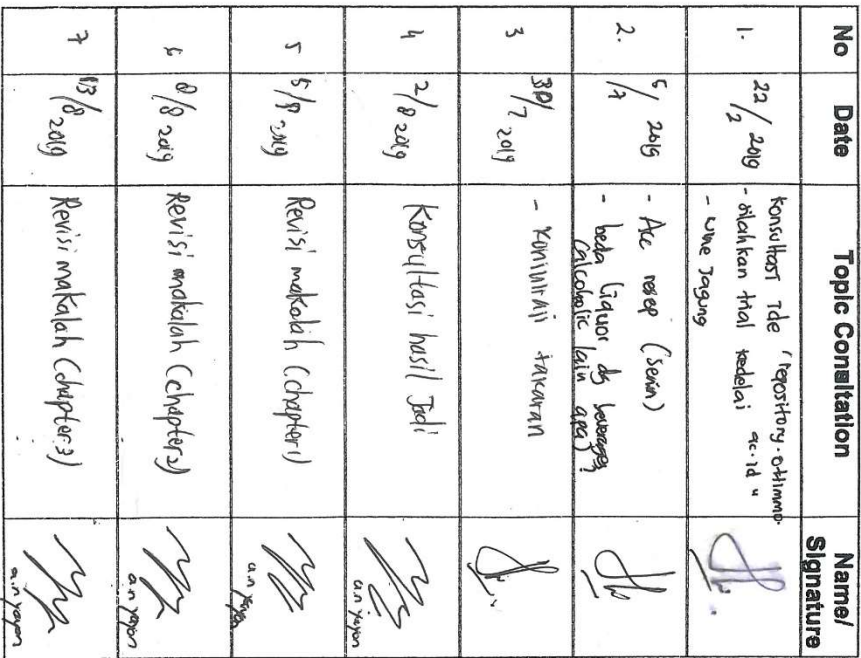 No Date Topic Consultation Name/
Signature
1. 22/2 2019 Konsultasi Ide "repository.ottimmo.
ac.id"
- silahkan trial kedelai
- wine Jagung
2. 5/7 2019 - Acc resep (Senin)
- beda Liquor dg beverages
calcoholic lain apa)?
3 30/7 2019 - takaran
4 2/8 2019 Konsultasi hasil Jadi
a.n yayan
5 5/8 2019 Revisi makalah (chapter1)
a.n yayan
6 8/8 2019 Revisi makalah (chapter2)
a.n yayan
7 13/8 2019 Revisi makalah (chapter3)
a.n yayan